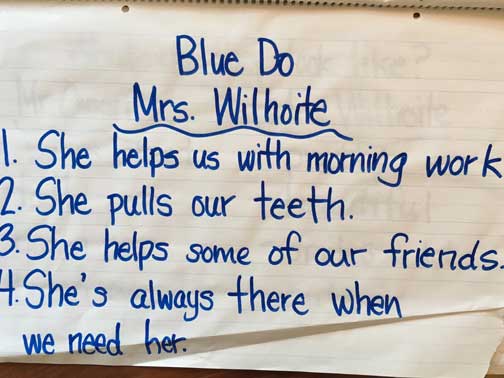 Blue Do
Mrs. Wilhoite
1. She helps us with morning work
2. She pulls our teeth.
3. She helps some of our friends.
4. She's always there when
we need her.